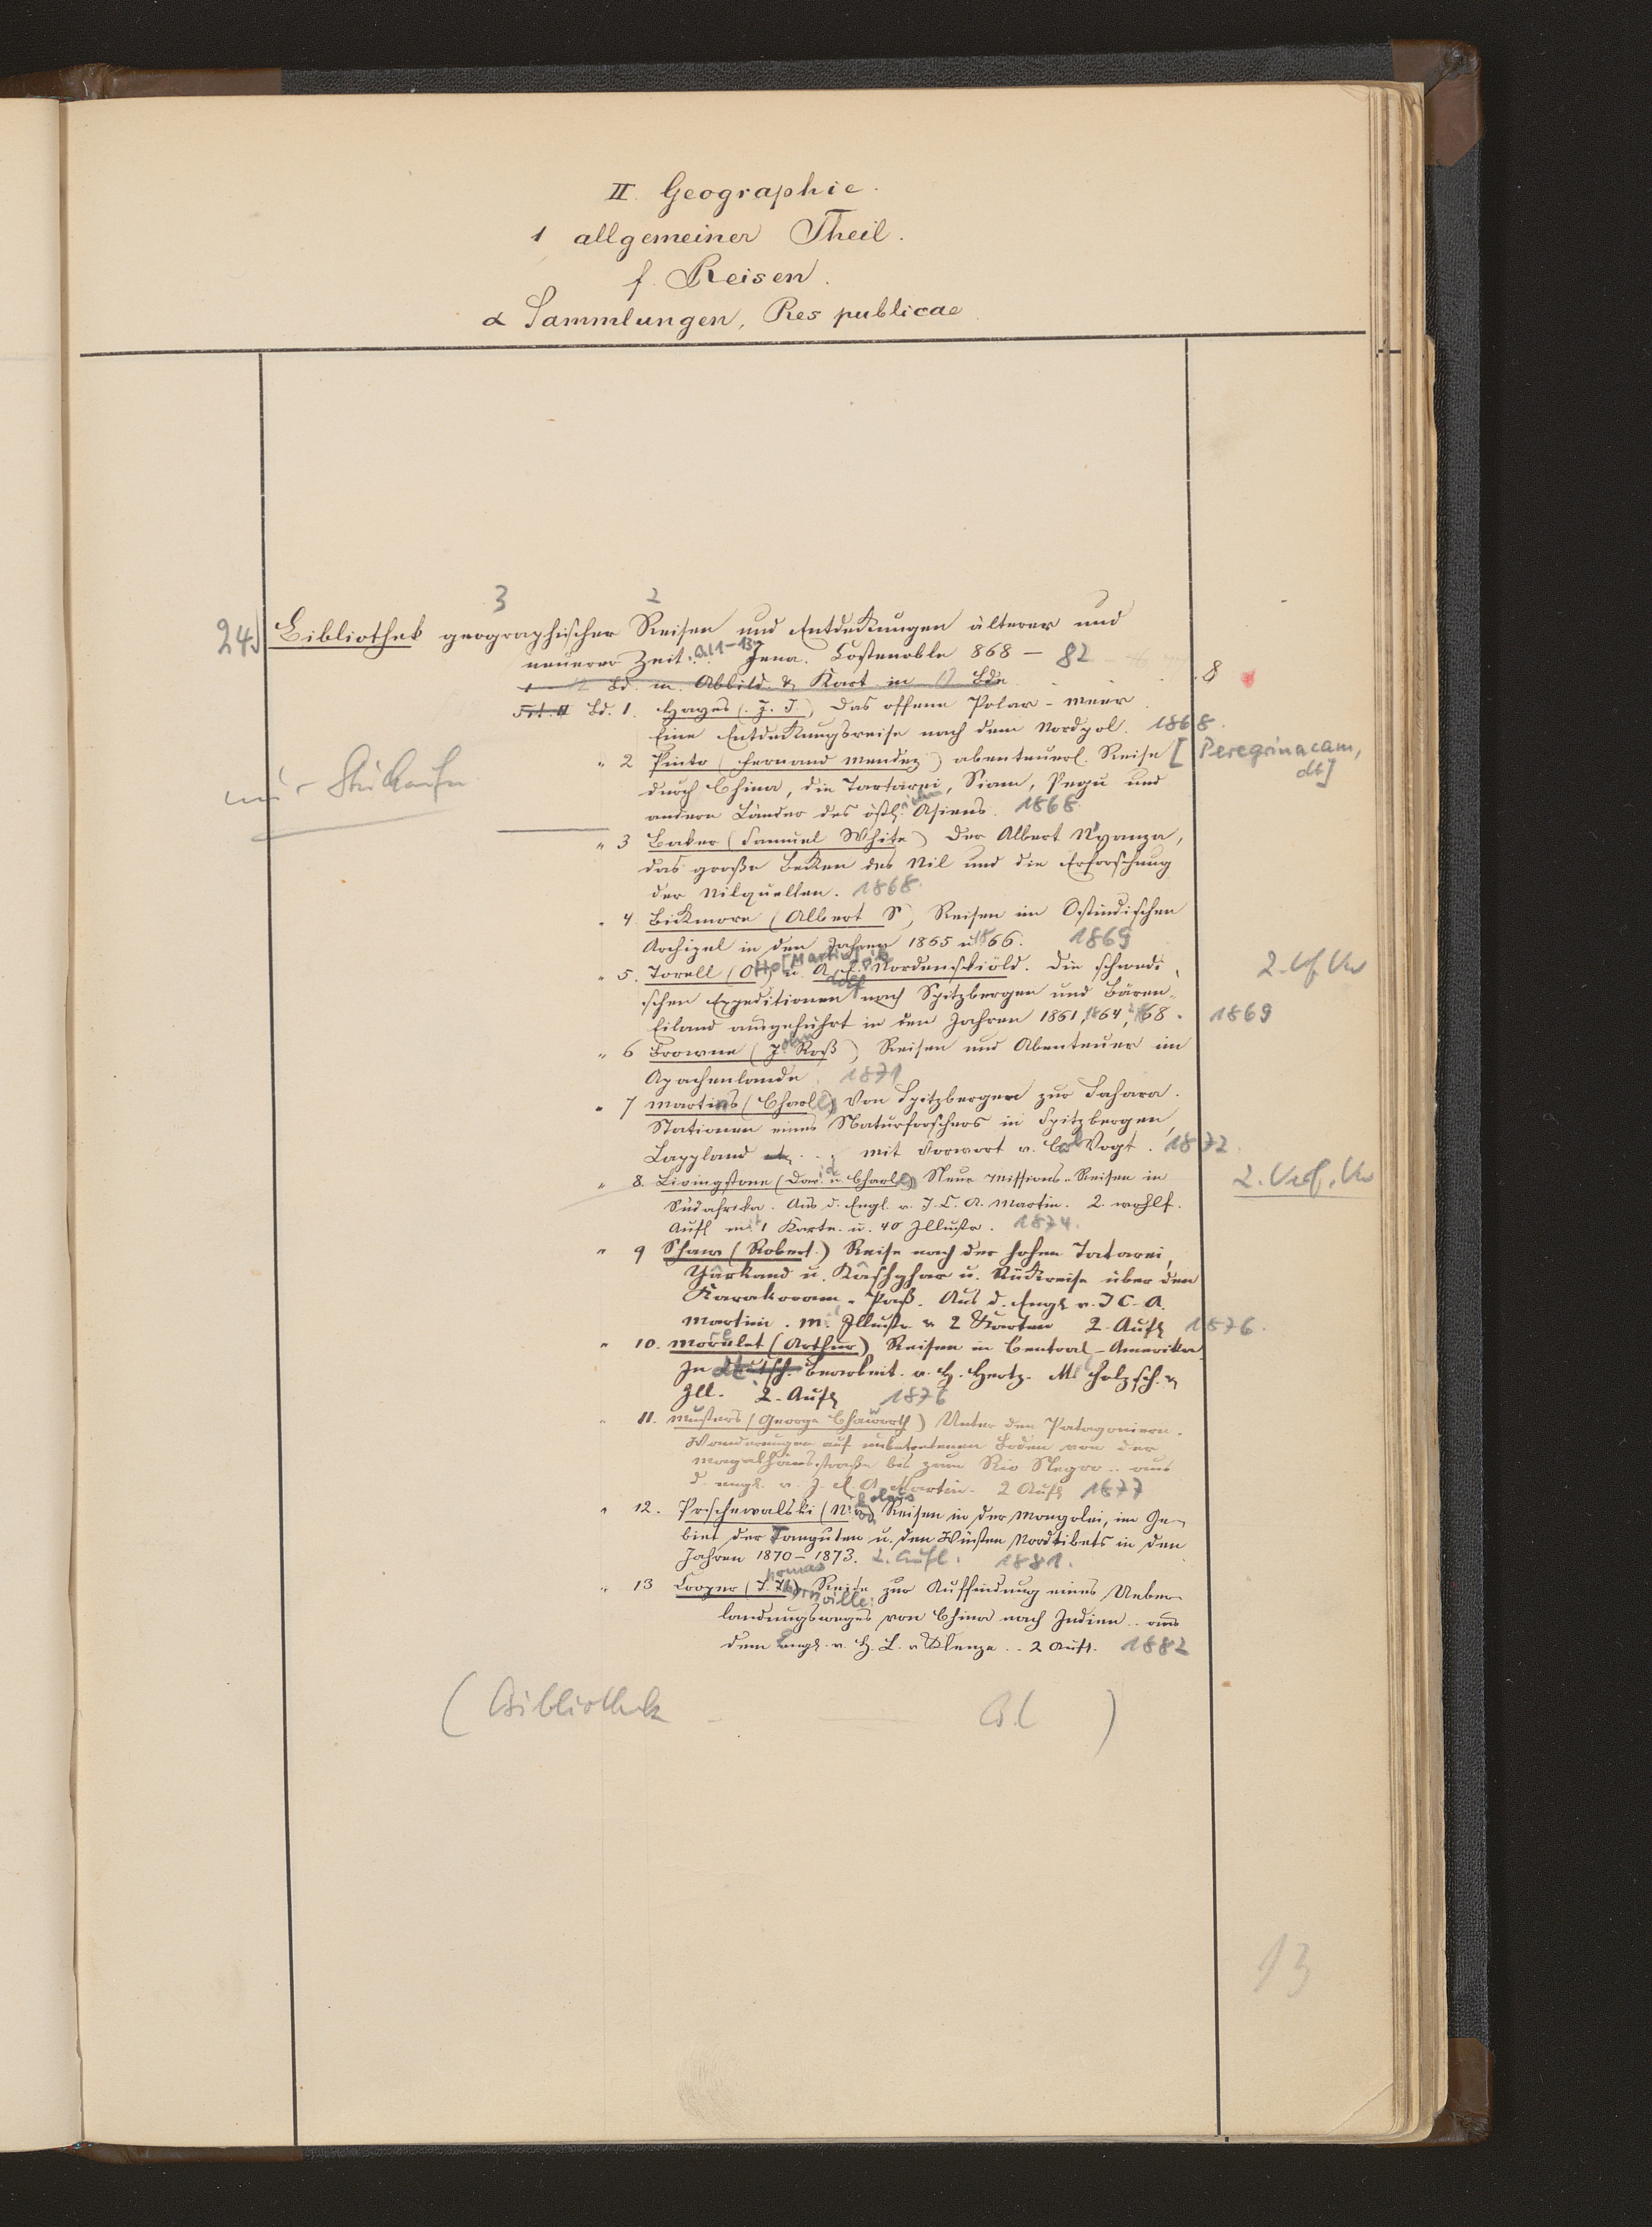 II. Geographie.
1 allgemeiner Theil.
f. Reisen.
α Sammlungen, Res publicae
3 2
24) Bibliothek geographischer Reisen und Entdeckungen älterer und
neuerer Zeit. Bd 1–13 Jena. Costenoble 868 – 82
Bd. m. Abbild. & Kart. in 12 Bde 8
Bd. 1. Hayes (J. J.) Das offene Polar-Meer
Eine Entdeckungsreise nach dem Nordpol. 1868.
" 2 Pinto (Fernand Mendez) abenteuerl. Reise [Peregrinacam, dt]
durch China, die Tartarei, Siam, Pegu und
andere Länder des östlichen Asiens. 1868.
" 3 Baker (Samuel White) Der Albert N'yanza,
das große Becken des Nil und die Erforschung
der Nilquellen. 1868.
" 4. Bickmore (Albert S) Reisen im Ostindischen
Archipel in den Jahren 1865 u 1866. 1869
" 5. Torell (Otto [Martin]) u. A. E. Nordenskiöld. Die schwedi
schen Expeditionen nach Spitzbergen und Bären-
Eiland ausgeführt in den Jahren 1861, 1864, 1868. 1869
" 6 Browne (John Roß) Reisen und Abenteuer im
Apachenlande. 1871
" 7 Martins (Charles) Von Spitzbergen zur Sahara.
Stationen eines Naturforschers in Spitzbergen,
Lappland ... mit Vorwort v. Carl Vogt. 1872.
" 8. Livingstone (David u. Charles) Neue Missions-Reisen in
Südafrika. Aus d. Engl. v. J. E. A. Martin. 2. wohlf.
Aufl mit 1 Karte. u. 40 Illustr. 1874.
" 9 Shaw (Robert) Reise nach der hohen Tatarei,
Yârkand u. Kâshghar u. Rückreise über den
Karakoram-Paß. Aus d. Engl v. J. E. A.
Martin. m. Illustr. & 2 Karten 2. Aufl 1876.
" 10. Morelet (Arthur) Reisen in Central-Amerika
In dt. Bearbeit. v. H. Hertz. Mit Holzsch. &
Ill. 2. Aufl 1876
" 11. Musters (George Chaworth) Unter den Patagoniern.
Wanderungen auf unbetretenem Boden von der
Magalhãesstraße bis zum Rio Negro .. aus
d. engl. v. J. E. A. Martin. 2 Aufl 1877
" 12. Prschewalski (Nikolaus von) Reisen in der Mongolei, im Ge-
biet der Tanguten u. den Wüsten Nordtibets in den
Jahren 1870–1873. 2. Aufl. 1881.
" 13 Cooper (Thomas Thornville) Reise zur Auffindung eines Ueber-
landungsweges von China nach Indien .. aus
dem Engl. v. H. L. v Klenze .. 2 Aufl. 1882
(Bibliothek – Bd )
13